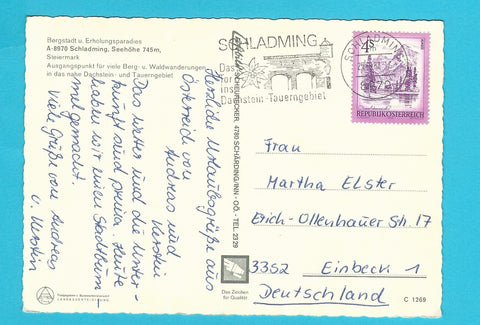 Bergstadt u. Erholungsparadies
A-8970 Schladming, Seehöhe 745m,
Steiermark
Ausgangspunkt für viele Berg- u. Waldwanderungen
in das nahe Dachstein- und Tauerngebiet
Herzliche Urlaubsgrüße aus
Österreich von
Andreas und
Kerstin
Das Wetter und die Unter-
kunft sind prima. Heute
haben wir einen Stadtbum-
mel gemacht.
Viele Grüße von Andreas
u. Kerstin
4780 SCHÄRDING/INN - OÖ. - TEL. 2329
SCHLADMING
Das
Dachstein-Tauerngebiet
SCHLADMING
4 S
REPUBLIK ÖSTERREICH
Frau
Martha Elster
Erich-Ollenhauer Str. 17
3352 Einbeck 1
Deutschland
Das Zeichen
für Qualität
C 1269